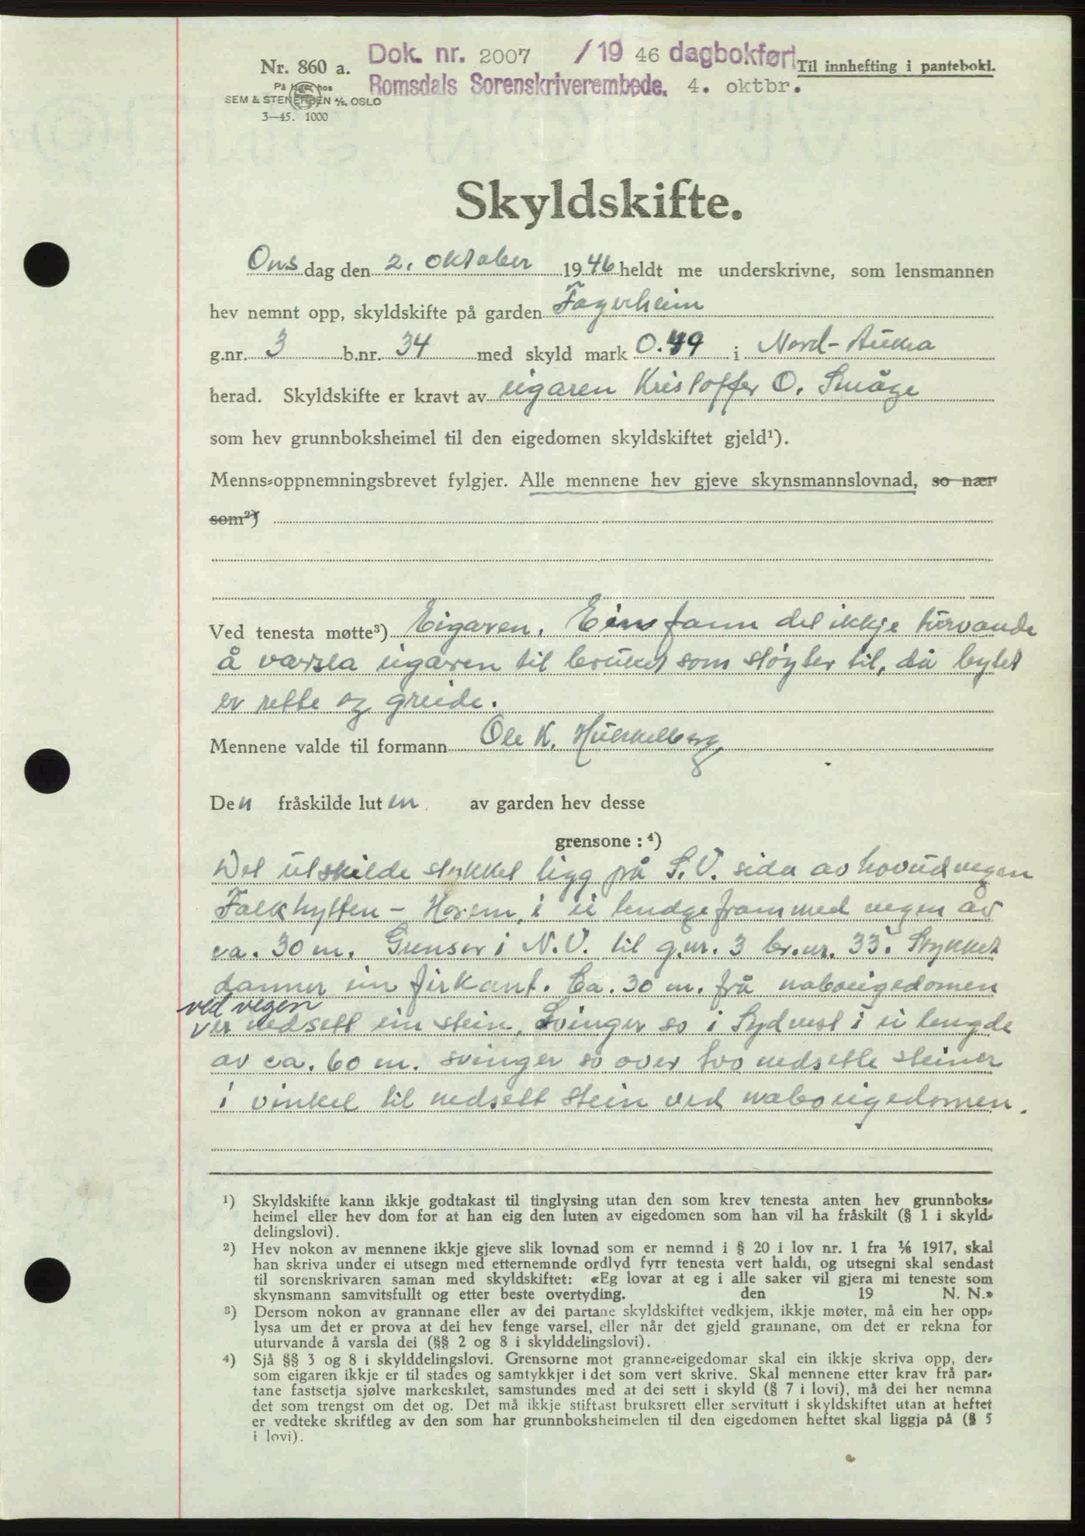 Nr. 860 a.
Dok. nr. 2007 /19 46 dagbokført
Til innhefting i pantebokl.
SEM & STENERSEN A/S, OSLO
3—45. 1000
Romsdals Sorenskriverembede. 4. oktbr.
Skyldskifte.
Ons dag den 2. oktober 1946 heldt me underskrivne, som lensmannen
hev nemnt opp, skyldskifte på garden Fagerheim
g.nr. 3 b.nr. 34 med skyld mark 0.49 i Nord-Aukra
herad. Skyldskifte er kravt av eigaren Kristoffer O. Småge
som hev grunnboksheimel til den eigedomen skyldskiftet gjeld¹).
Menns-oppnemningsbrevet fylgjer. Alle mennene hev gjeve skynsmannslovnad, so nær
som²)
Ved tenesta møtte³) Eigaren. Ein fann det ikkje turvande
å varsla eigaren til bruket som støyter til, då bytet
er rette og greide.
Mennene valde til formann Ole K.
Den fråskilde luten av garden hev desse
grensone :⁴)
Det utskilde stykket ligg på S.V. sida av hovudvegen
Falkhytten - Horem, i ei lengde fram med vegen av
ca. 30 m. Grenser i N.V. til g.nr. 3 br.nr. 33. Stykket
danner ein firkant. Ca. 30 m. frå naboeigedomen
ved vegen
er nedsett ein stein. Svinger so i Sydvest i ei lengde
av ca. 60 m. svinger so over two nedsette steiner
i vinkel til nedsett stein ved naboeigedomen.
¹) Skyldskifte kann ikkje godtakast til tinglysing utan den som krev tenesta anten hev grunnboks-
heimel eller hev dom for at han eig den luten av eigedomen som han vil ha fråskilt (§ 1 i skyld-
delingslovi).
²) Hev nokon av mennene ikkje gjeve slik lovnad som er nemnd i § 20 i lov nr. 1 fra 1/6 1917, skal
han skriva under ei utsegn med etternemnde ordlyd fyrr tenesta vert haldi, og utsegni skal sendast
til sorenskrivaren saman med skyldskiftet: «Eg lovar at eg i alle saker vil gjera mi teneste som
skynsmann samvitsfullt og etter beste overtyding. den 19 N. N.»
³) Dersom nokon av grannane eller av dei partane skyldskiftet vedkjem, ikkje møter, må ein her opp-
lysa um det er prova at dei hev fenge varsel, eller når det gjeld grannane, om det er rekna for
uturvande å varsla dei (§§ 2 og 8 i skylddelingslovi).
⁴) Sjå §§ 3 og 8 i skylddelingslovi. Grensorne mot granne-eigedomar skal ein ikkje skriva opp, der-
som eigaren ikkje er til stades og samtykkjer i det som vert skrive. Skal mennene etter krav frå par-
tane fastsetja sjølve markeskilet, samstundes med at dei sett i skyld (§ 7 i lovi), må dei her nemna
det som trengst om det og. Det må ikkje stiftast bruksrett eller servitutt i skyldskiftet utan at heftet
er vedteke skriftleg av den som har grunnboksheimelen til den eigedomen heftet skal liggja på (§ 5
i lovi).